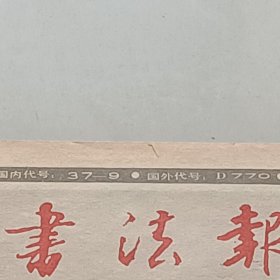 国内代号：37—9 ● 国外代号：D770 ●
書法報